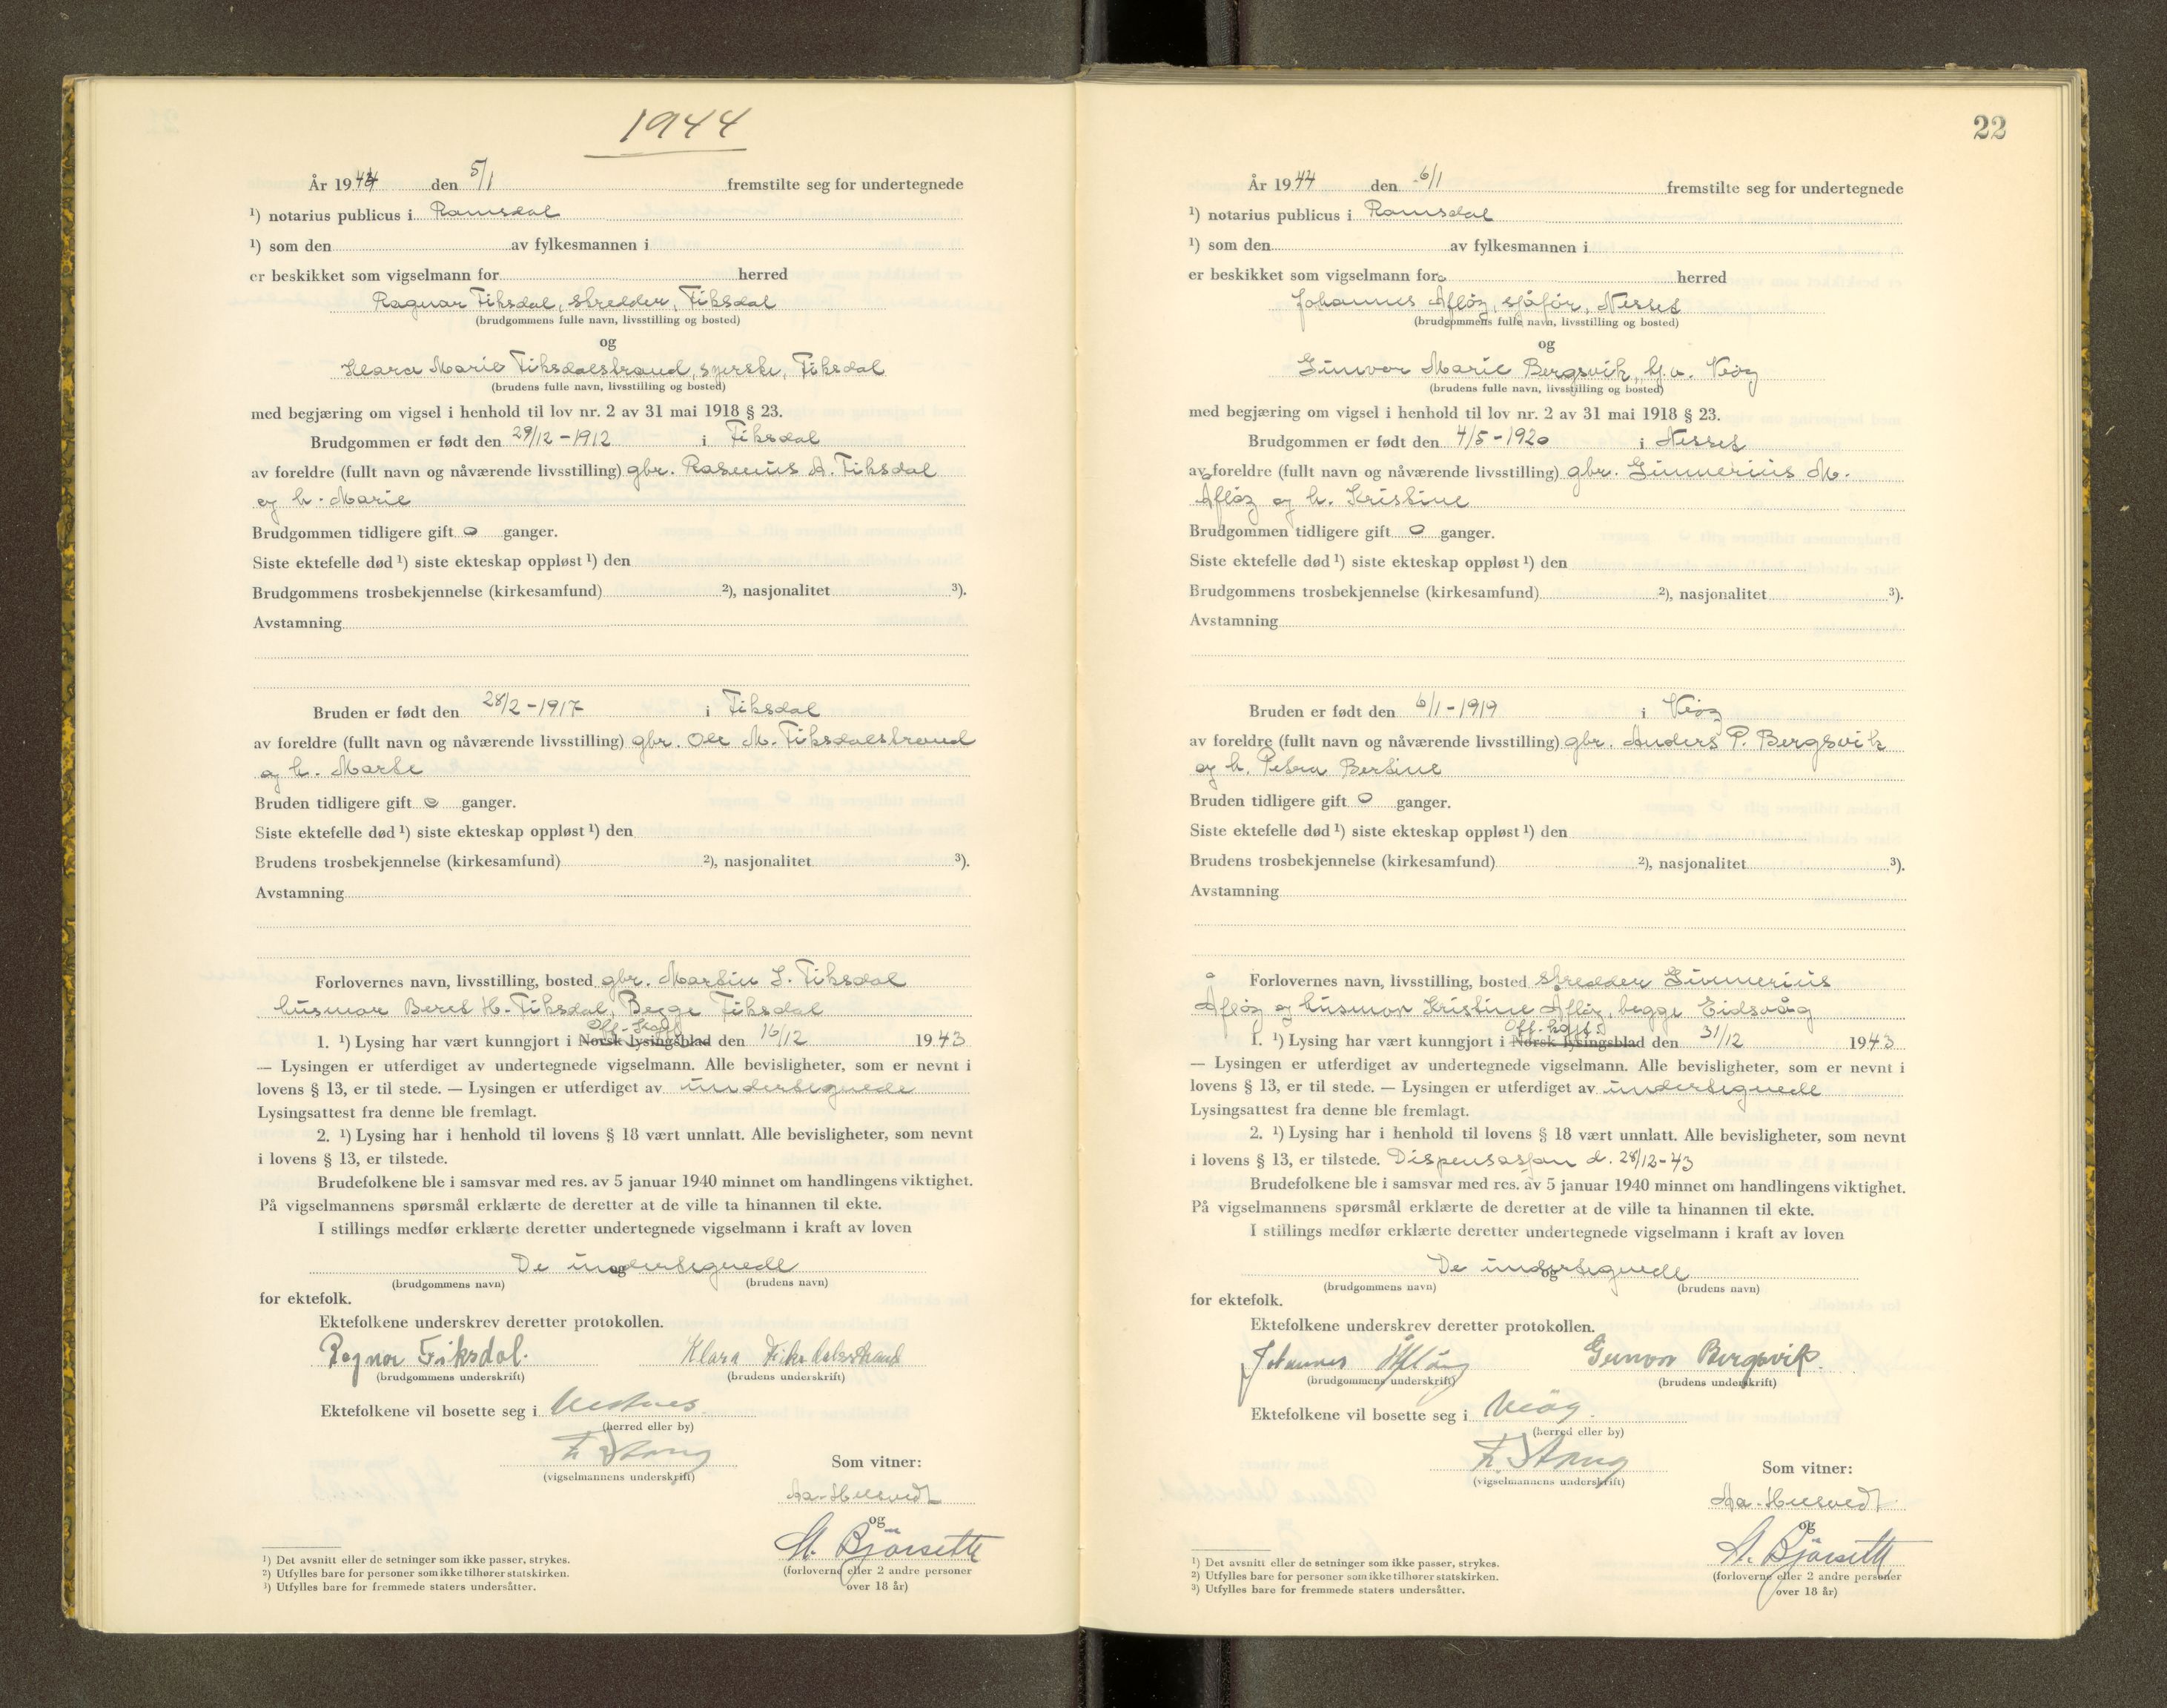 1944
År 1944 den 5/1 fremstilte seg for undertegnede
¹) notarius publicus i Romsdal
¹) som den av fylkesmannen i
er beskikket som vigselmann for herred
Ragnar Fiksdal, skredder, Fiksdal
(brudgommens fulle navn, livsstilling og bosted)
og
Klara Marie Fiksdalstrand, syerske, Fiksdal
(brudens fulle navn, livsstilling og bosted)
med begjæring om vigsel i henhold til lov nr. 2 av 31 mai 1918 § 23.
Brudgommen er født den 29/12-1912 i Fiksdal
av foreldre (fullt navn og nåværende livsstilling) gbr. Rasmus A. Fiksdal
og h. Marie
Brudgommen tidligere gift 0 ganger.
Siste ektefelle død ¹) siste ekteskap oppløst ¹) den
Brudgommens trosbekjennelse (kirkesamfund) ²), nasjonalitet ³).
Avstamning
Bruden er født den 28/2-1917 i Fiksdal
av foreldre (fullt navn og nåværende livsstilling) gbr. Ole M. Fiksdalstrand
og h. Marte
Bruden tidligere gift 0 ganger.
Siste ektefelle død ¹) siste ekteskap oppløst ¹) den
Brudens trosbekjennelse (kirkesamfund) ²), nasjonalitet ³).
Avstamning
Forlovernes navn, livsstilling, bosted gbr. Martin L. Fiksdal
husmor Beret H. Fiksdal, Begge Fiksdal
Off. kgjt.
1. ¹) Lysing har vært kunngjort i Norsk lysingsblad den 16/12 1943
— Lysingen er utferdiget av undertegnede vigselmann. Alle bevisligheter, som er nevnt i
lovens § 13, er til stede. — Lysingen er utferdiget av undertegnede
Lysingsattest fra denne ble fremlagt.
2. ¹) Lysing har i henhold til lovens § 18 vært unnlatt. Alle bevisligheter, som nevnt
i lovens § 13, er tilstede.
Brudefolkene ble i samsvar med res. av 5 januar 1940 minnet om handlingens viktighet.
På vigselmannens spørsmål erklærte de deretter at de ville ta hinannen til ekte.
I stillings medfør erklærte deretter undertegnede vigselmann i kraft av loven
De undertegnede
og
(brudgommens navn) (brudens navn)
for ektefolk.
Ektefolkene underskrev deretter protokollen.
Ragnar Fiksdal. Klara Fiksdalstrand
(brudgommens underskrift) (brudens underskrift)
Ektefolkene vil bosette seg i Vestnes.
(herred eller by)
(vigselmannens underskrift)
Som vitner:
Aa. Husvedt
og
A. Bjørseth
(forloverne eller 2 andre personer
over 18 år)
¹) Det avsnitt eller de setninger som ikke passer, strykes.
²) Utfylles bare for personer som ikke tilhører statskirken.
³) Utfylles bare for fremmede staters undersåtter.
22
År 1944 den 6/1 fremstilte seg for undertegnede
¹) notarius publicus i Romsdal
¹) som den av fylkesmannen i
er beskikket som vigselmann for herred
Johannes Afløy, sjåfør, Nesset
(brudgommens fulle navn, livsstilling og bosted)
og
Gunvor Marie Bergsvik, hj.v. Veøy
(brudens fulle navn, livsstilling og bosted)
med begjæring om vigsel i henhold til lov nr. 2 av 31 mai 1918 § 23.
Brudgommen er født den 4/5-1920 i Nesset
av foreldre (fullt navn og nåværende livsstilling) gbr. Gunnerius M.
Åfløy og h. Kristine
Brudgommen tidligere gift 0 ganger.
Siste ektefelle død ¹) siste ekteskap oppløst ¹) den
Brudgommens trosbekjennelse (kirkesamfund) ²), nasjonalitet ³).
Avstamning
Bruden er født den 6/1-1919 i Veøy
av foreldre (fullt navn og nåværende livsstilling) gbr. Anders P. Bergsvik
og h. Petra Bertine
Bruden tidligere gift 0 ganger.
Siste ektefelle død ¹) siste ekteskap oppløst ¹) den
Brudens trosbekjennelse (kirkesamfund) ²), nasjonalitet ³).
Avstamning
Forlovernes navn, livsstilling, bosted skredder Gunnerius
Åfløy og husmor Kristine Afløy, begge Eidsvåg
Off. kgjt.
1. ¹) Lysing har vært kunngjort i Norsk lysingsblad den 31/12 1943
— Lysingen er utferdiget av undertegnede vigselmann. Alle bevisligheter, som er nevnt i
lovens § 13, er til stede. — Lysingen er utferdiget av undertegnede
Lysingsattest fra denne ble fremlagt.
2. ¹) Lysing har i henhold til lovens § 18 vært unnlatt. Alle bevisligheter, som nevnt
i lovens § 13, er tilstede. Dispensasjon d. 28/12-43
Brudefolkene ble i samsvar med res. av 5 januar 1940 minnet om handlingens viktighet.
På vigselmannens spørsmål erklærte de deretter at de ville ta hinannen til ekte.
I stillings medfør erklærte deretter undertegnede vigselmann i kraft av loven
De undertegnede
og
(brudgommens navn) (brudens navn)
for ektefolk.
Ektefolkene underskrev deretter protokollen.
Johannes Åfløy Gunvor Bergsvik.
(brudgommens underskrift) (brudens underskrift)
Ektefolkene vil bosette seg i Veøy.
(herred eller by)
(vigselmannens underskrift)
Som vitner:
Aa. Husvedt
og
A. Bjørseth
(forloverne eller 2 andre personer
over 18 år)
¹) Det avsnitt eller de setninger som ikke passer, strykes.
²) Utfylles bare for personer som ikke tilhører statskirken.
³) Utfylles bare for fremmede staters undersåtter.